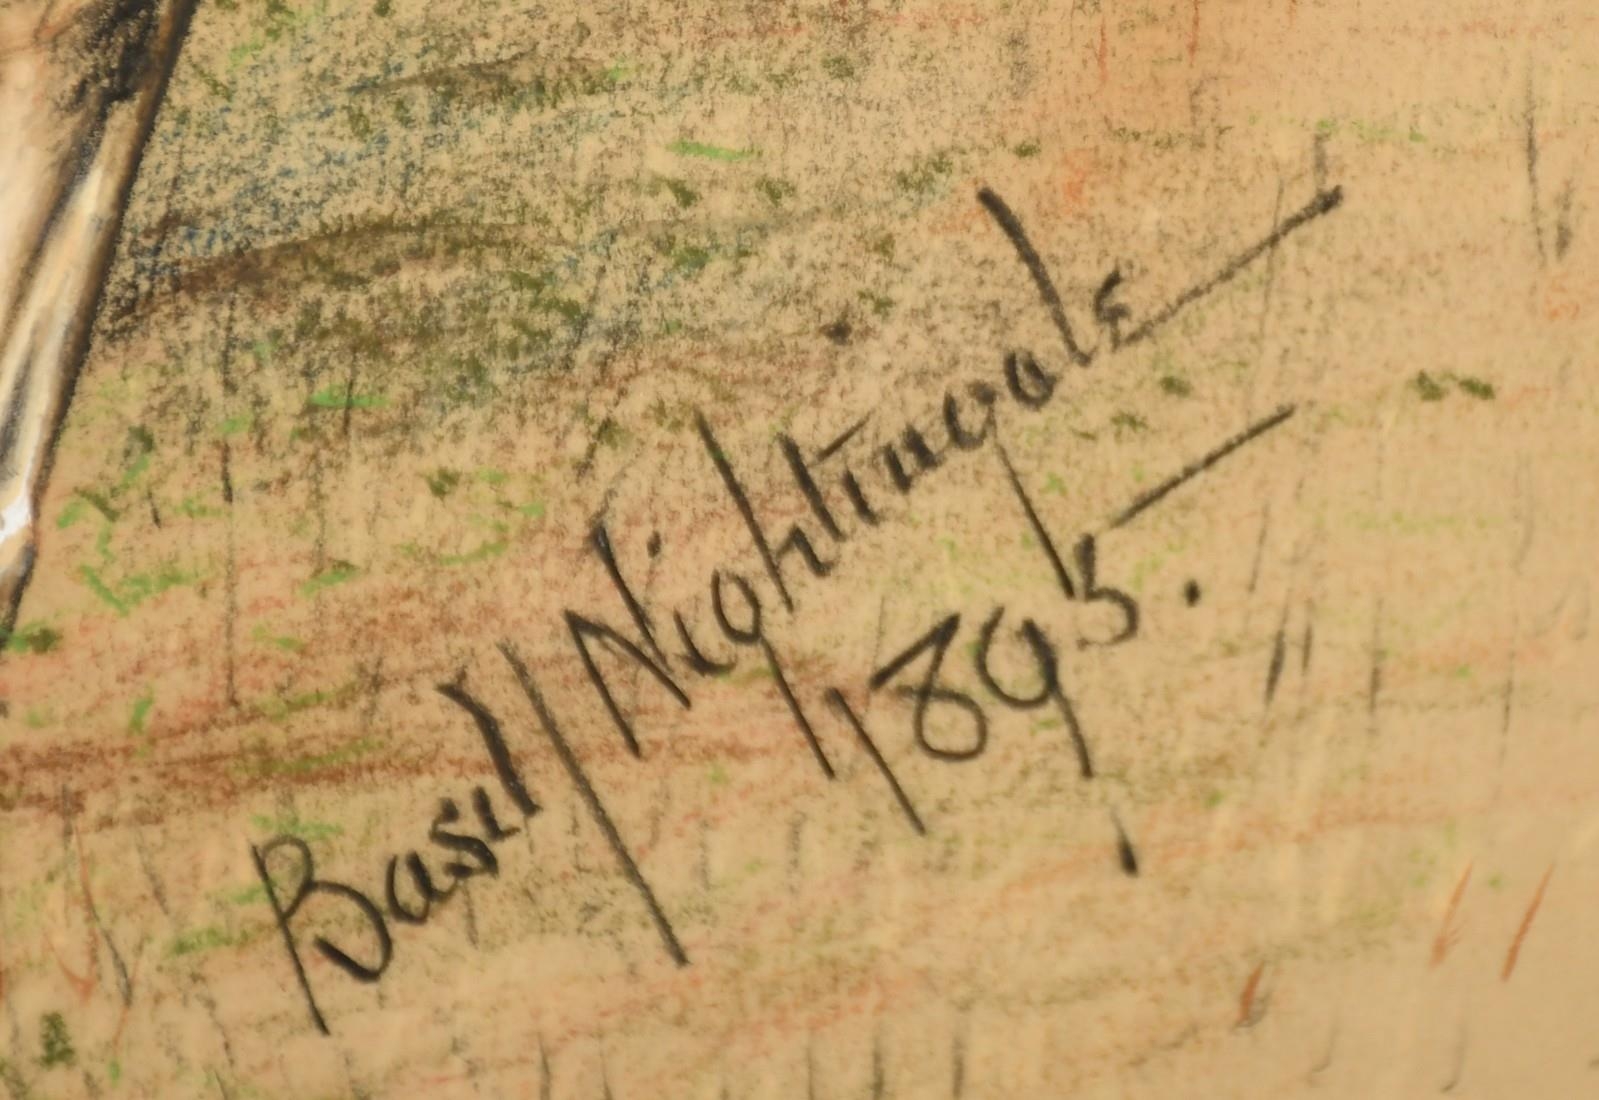 Basil Nightingale
1895.